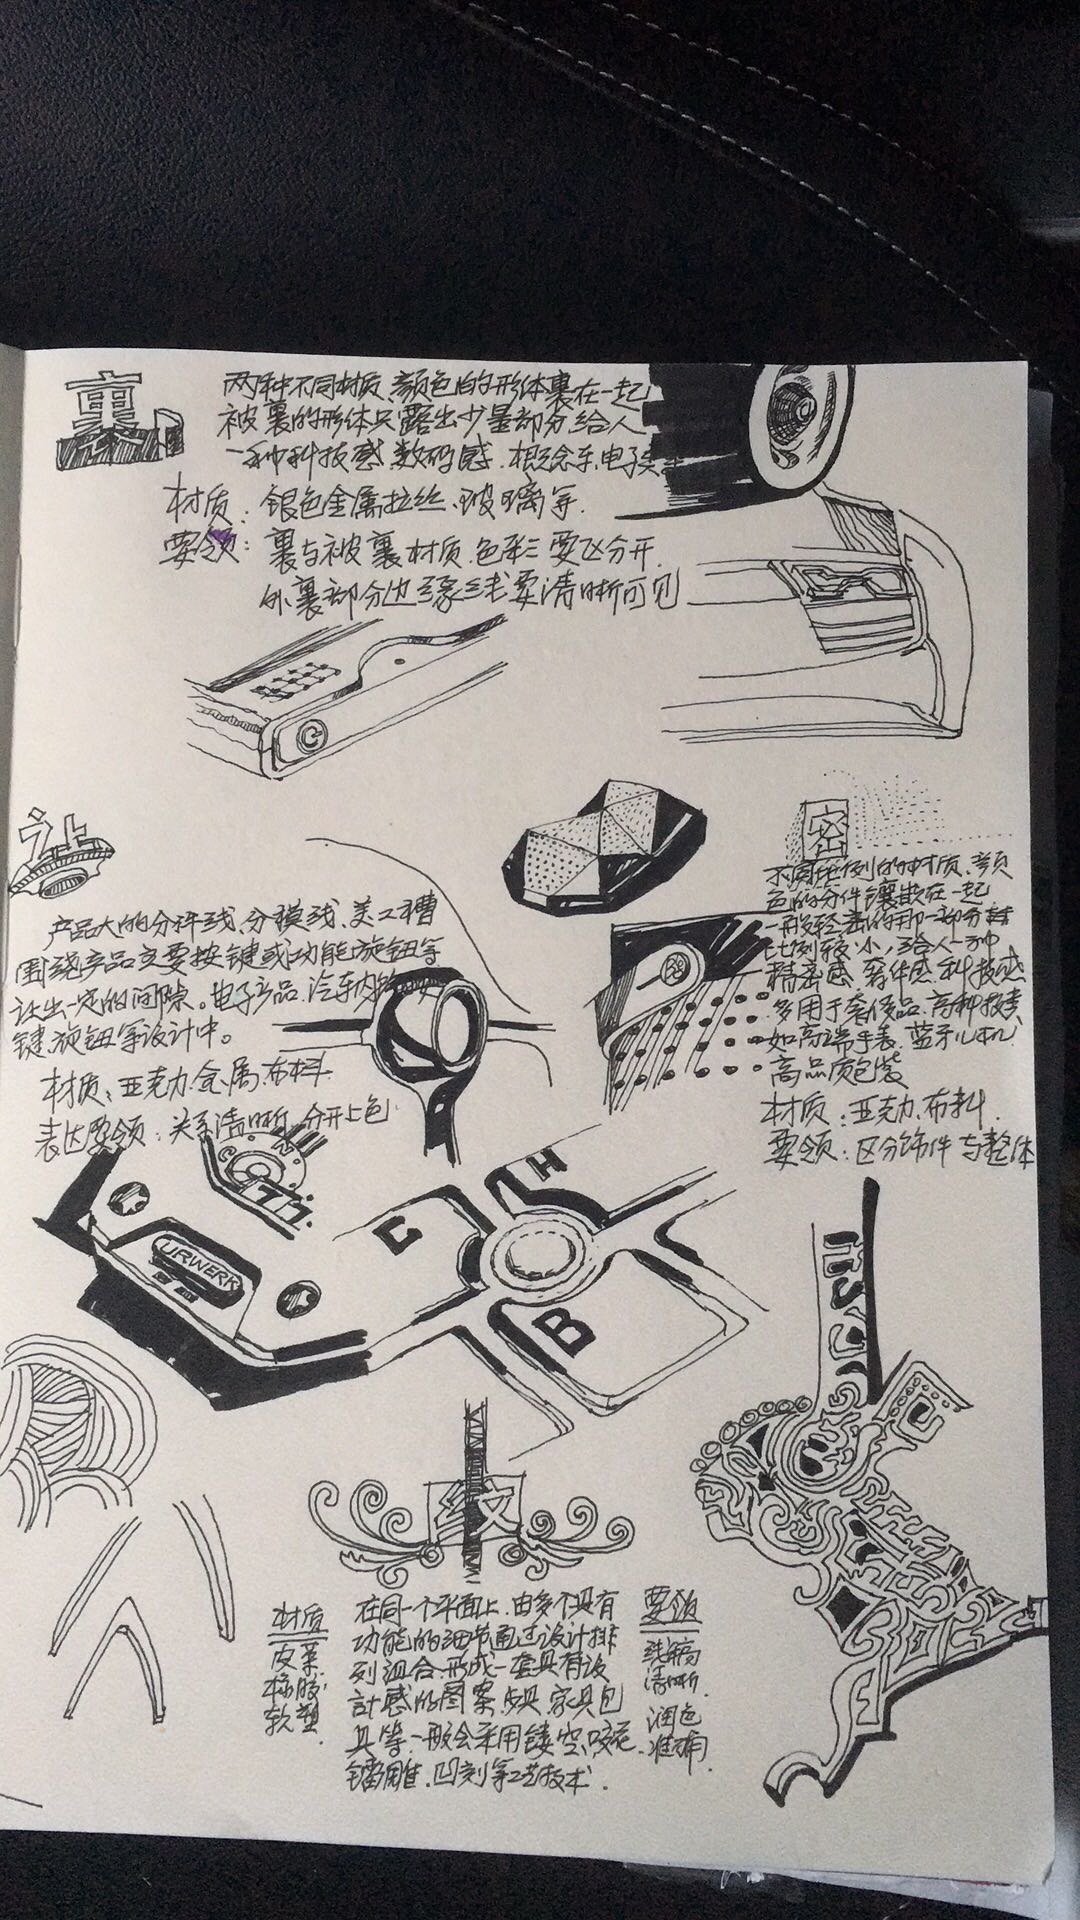 裹
两种不同材质、颜色的形体裹在一起
被裹的形体只露出少量部分,给人
一种科技感、数码感.概念车、电子类
材质:银色金属拉丝、玻璃等.
要领:裹与被裹材质.色彩 要区分开.
外裹部分边缘线要清晰可见
让
产品大的分件线、分模线、美工槽
围绕产品主要按键或功能旋钮等
让出一定的间隙。电子产品.汽车内饰
键.旋钮等设计中。
材质:亚克力.金属.布料.
表达要领:关系清晰.分开上色
密
不同比例的 材质、颜
色的分件镶嵌在一起
一般轻密的那一部分
比例较小,给人一种
精密感.奢侈感.科技感
多用于奢侈品.高科技类
如高端手表.蓝牙耳机
高品质包装
材质:亚克力.布料.
要领:区分饰件与整体
URWERK
C
H
B
纹
材质
皮革.
橡胶.
软塑.
在同一个平面上.由多个具有
功能的细节通过设计排
列组合.形成一套具有设
計感的图案. 家具包
具等.一般会采用镂空.咬花.
镭雕.凹刻等工艺技术.
要领
线稿
清晰.
润色
准确.